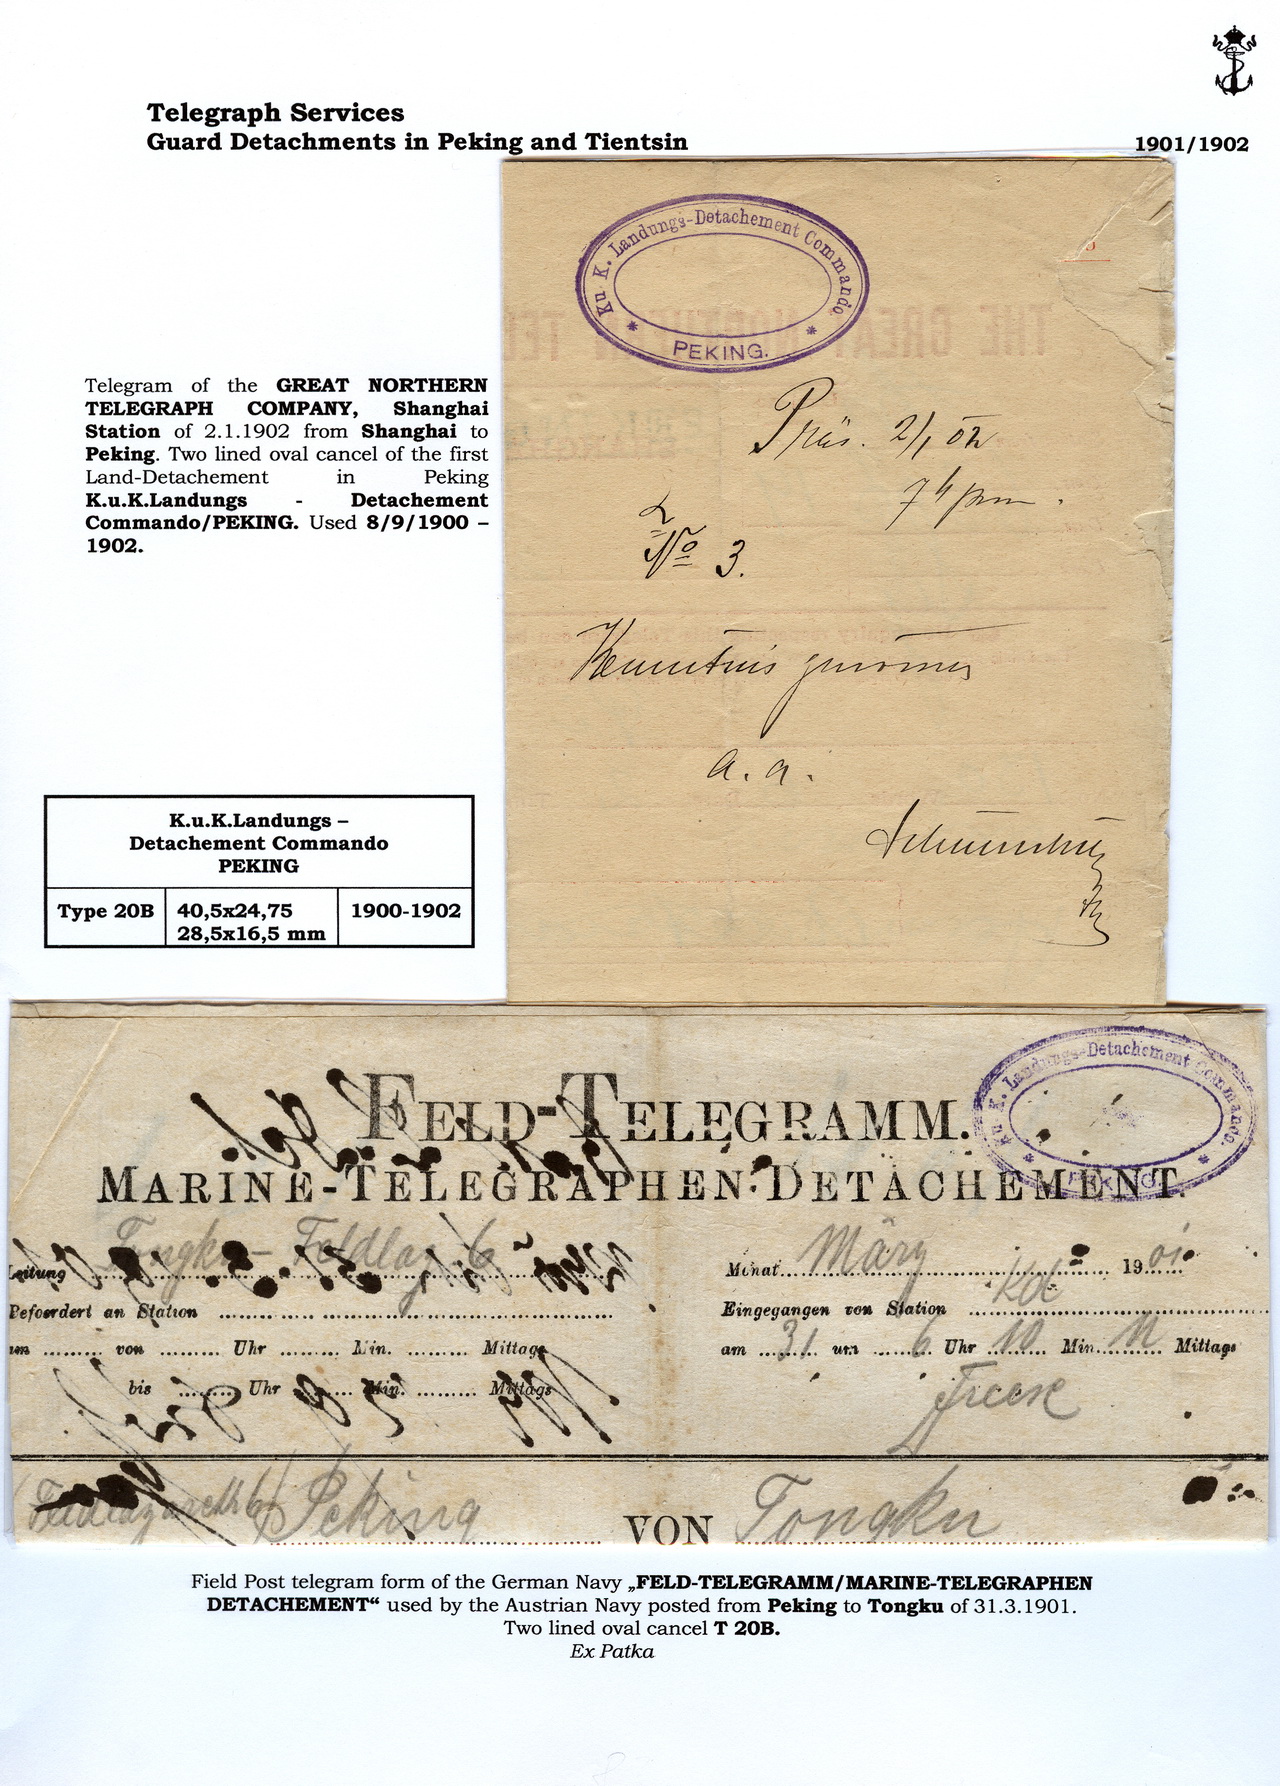 Telegraph Services
Guard Detachments in Peking and Tientsin
1901/1902
K u K. Landungs-Detachement Commando.
* PEKING. *
THE GREAT NORTHERN TEL
Telegram of the GREAT NORTHERN
TELEGRAPH COMPANY, Shanghai
Station of 2.1.1902 from Shanghai to
Peking. Two lined oval cancel of the first
Land-Detachement in Peking
K.u.K.Landungs - Detachement
Commando/PEKING. Used 8/9/1900 –
1902.
Präs. 2/1 02
7h pm.
No 3.
Kenntnis genommen
a. a.
K.u.K.Landungs –
Detachement Commando
PEKING
Type 20B
40,5x24,75
28,5x16,5 mm
1900-1902
K u K. Landungs-Detachement Commando.
* PEKING. *
FELD-TELEGRAMM.
MARINE-TELEGRAPHEN-DETACHEMENT.
Leitung Tongku – Feldlaz. 6
Monat März 1901
Befoerdert an Station
Eingegangen von Station
um von Uhr Min. Mittags
am 31 um 6 Uhr 10 Min. N Mittags
bis Uhr Min. Mittags
Freese
(Feldlazareth 6) Peking VON Tongku
Field Post telegram form of the German Navy „FELD-TELEGRAMM/MARINE-TELEGRAPHEN
DETACHEMENT“ used by the Austrian Navy posted from Peking to Tongku of 31.3.1901.
Two lined oval cancel T 20B.
Ex Patka